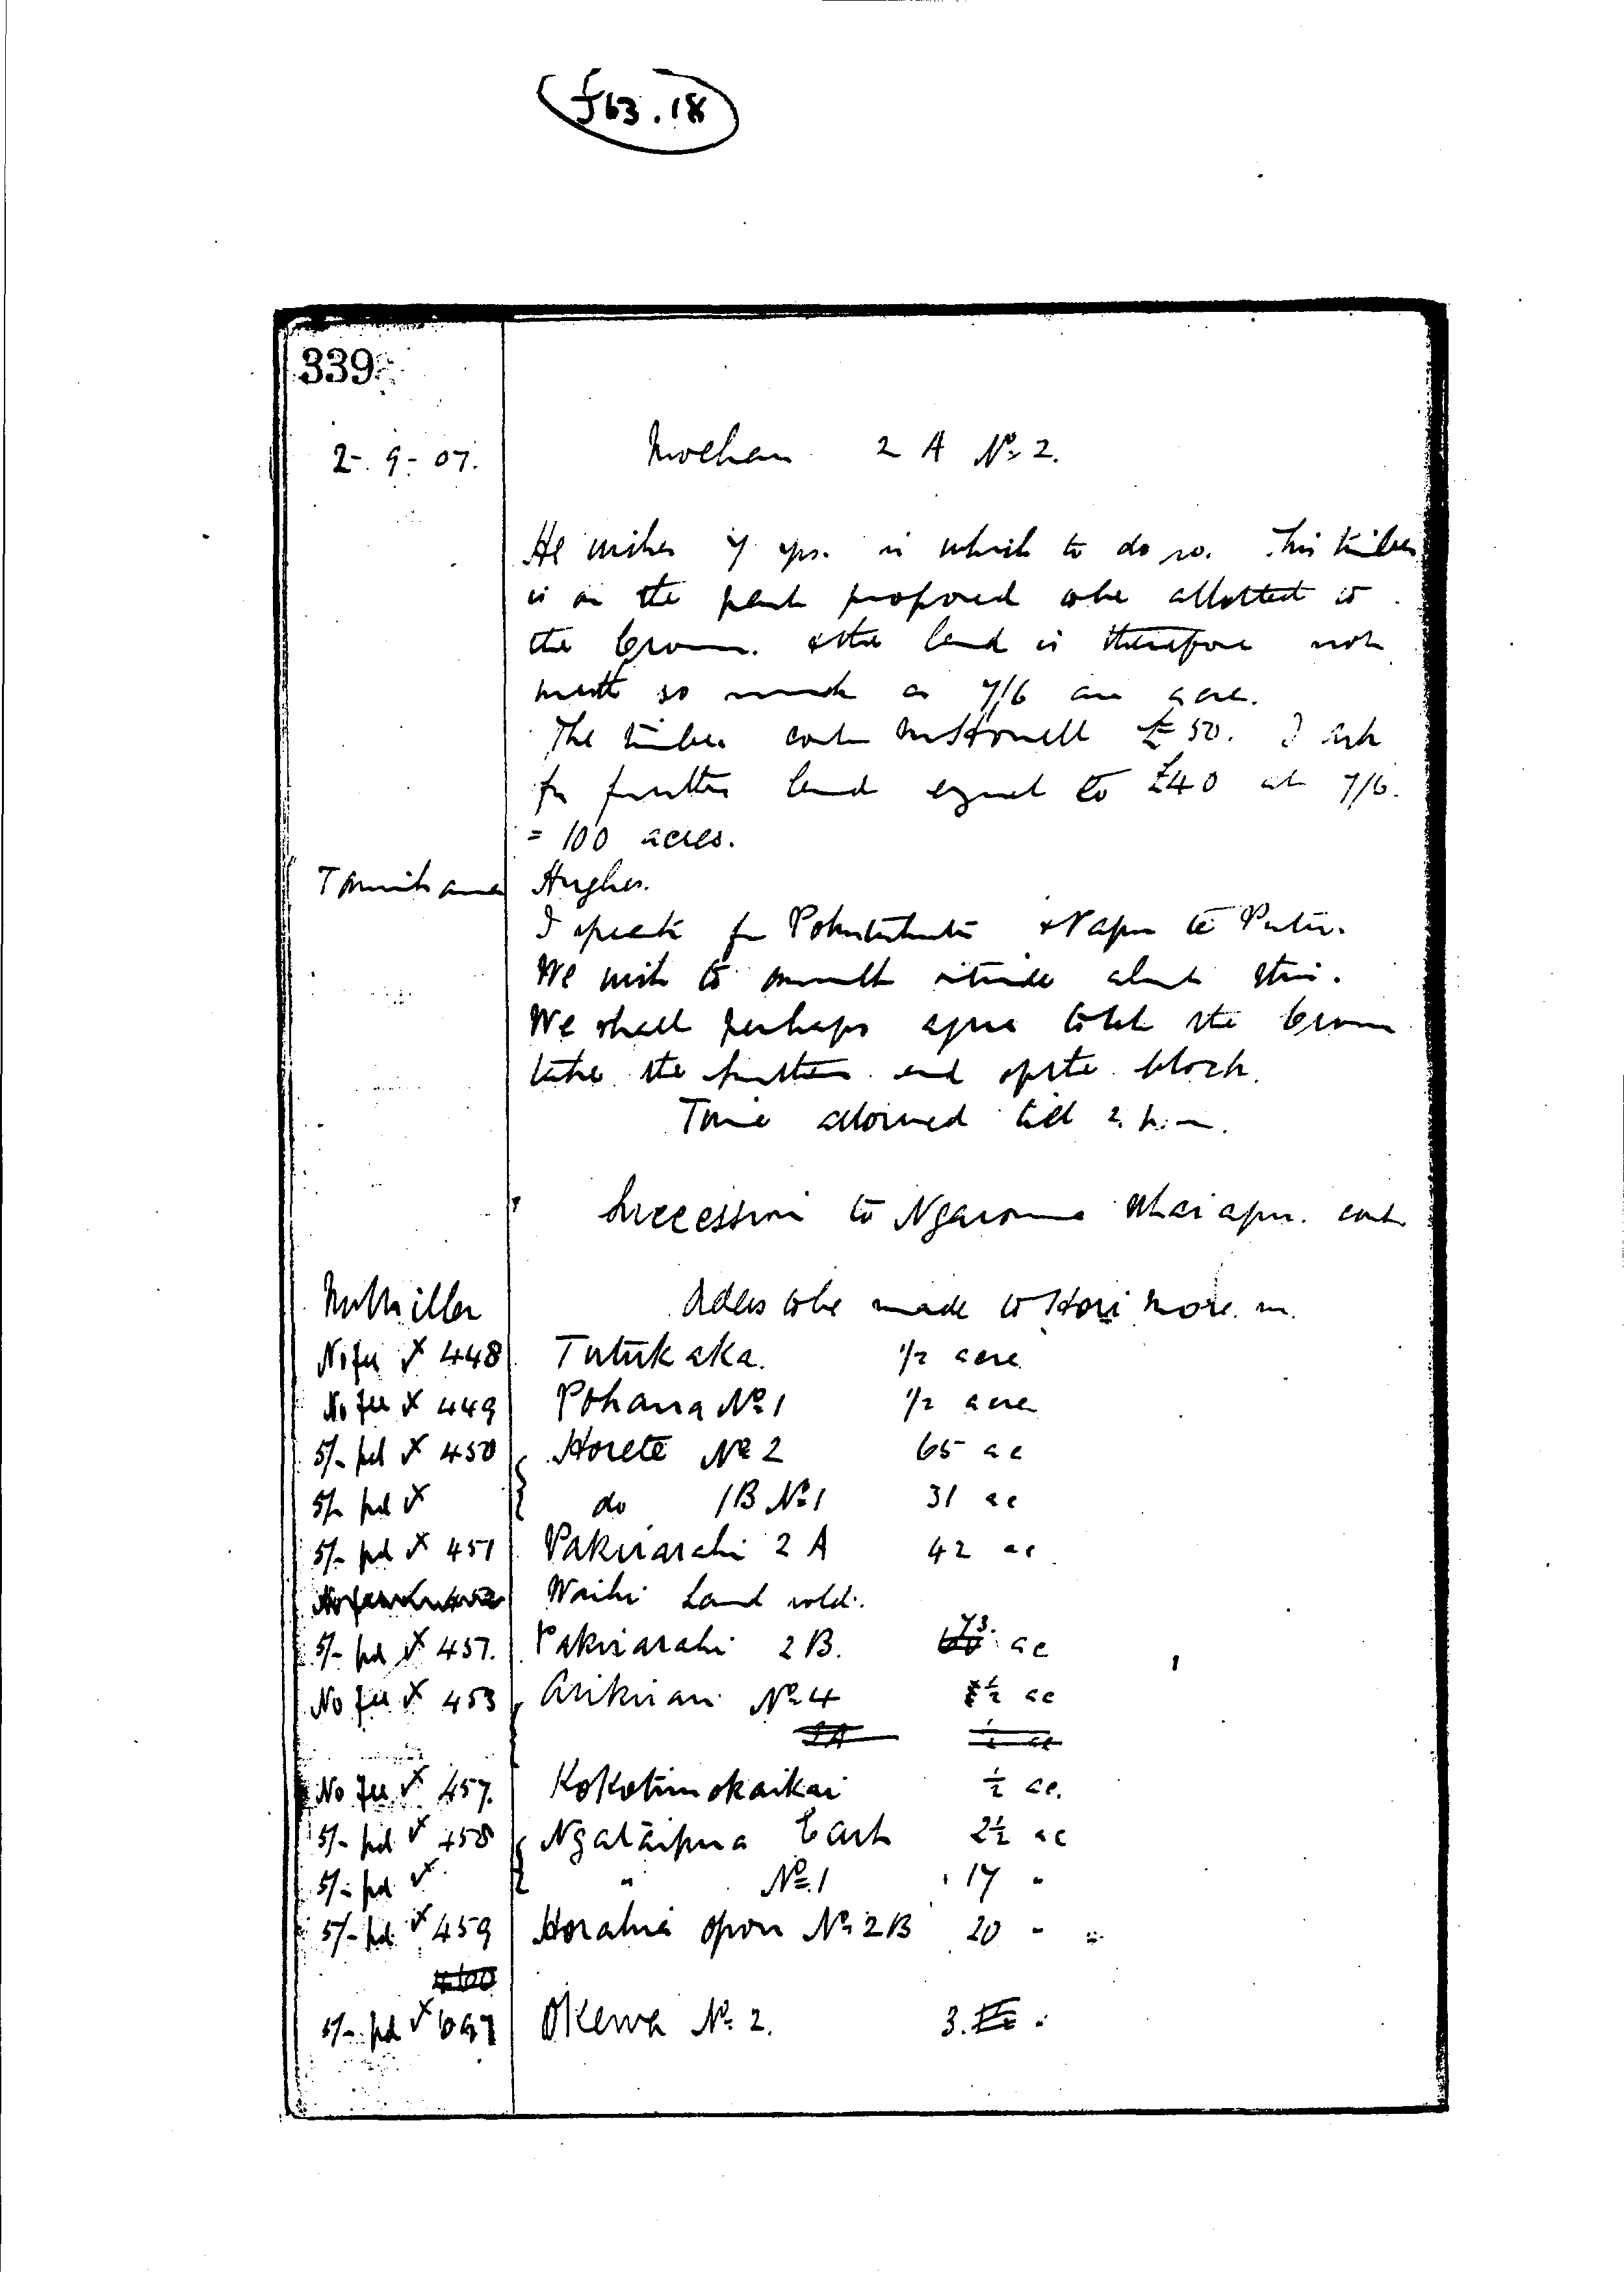 f63.18
339
2-.9-.07. Moehau 2 A Nº 2.
He wishes 7 yrs. in which to do so. This timber
is on the part proposed to be allotted to
the Crown. & the land is therefore not
worth so much as 7/6 an acre.
The timber cost McHowell £50. I ask
for further land equal to £40 at 7/6.
= 100 acres.
Tamihana Hughes.
I speak for & te
We wish to consult outside about this.
We shall perhaps agree to let the Crown
take the further end of the block.
Time allowed till 2 p.m.
Succession to cont
Miller Orders to be made to Hori More. m.
No fee ✓ 448 Tutukaka. 1/2 acre
No fee ✓ 449 Pohana Nº 1 1/2 acre
5/- pd ✓ 450 Horete Nº 2 65 ac
5/- pd ✓ do 1B Nº 1 31 ac
5/- pd ✓ 451 Pakirarahi 2 A 42 ac
Waihi Land sold.
5/- pd ✓ 457. Pakirarahi 2 B. 73. ac
No fee ✓ 453 Arikirau Nº 4 ½ ac
2A ½ ac
No fee ✓ 457. Kokotimokaikai ½ ac.
5/- pd ✓ 458 Ngataipua East 2½ ac
5/- pd ✓ " Nº 1 17 "
5/- pd ✓ 459 Horahia Opou Nº 2B 20 "
460
5/- pd ✓ 697 Okewa Nº 2. 3. "